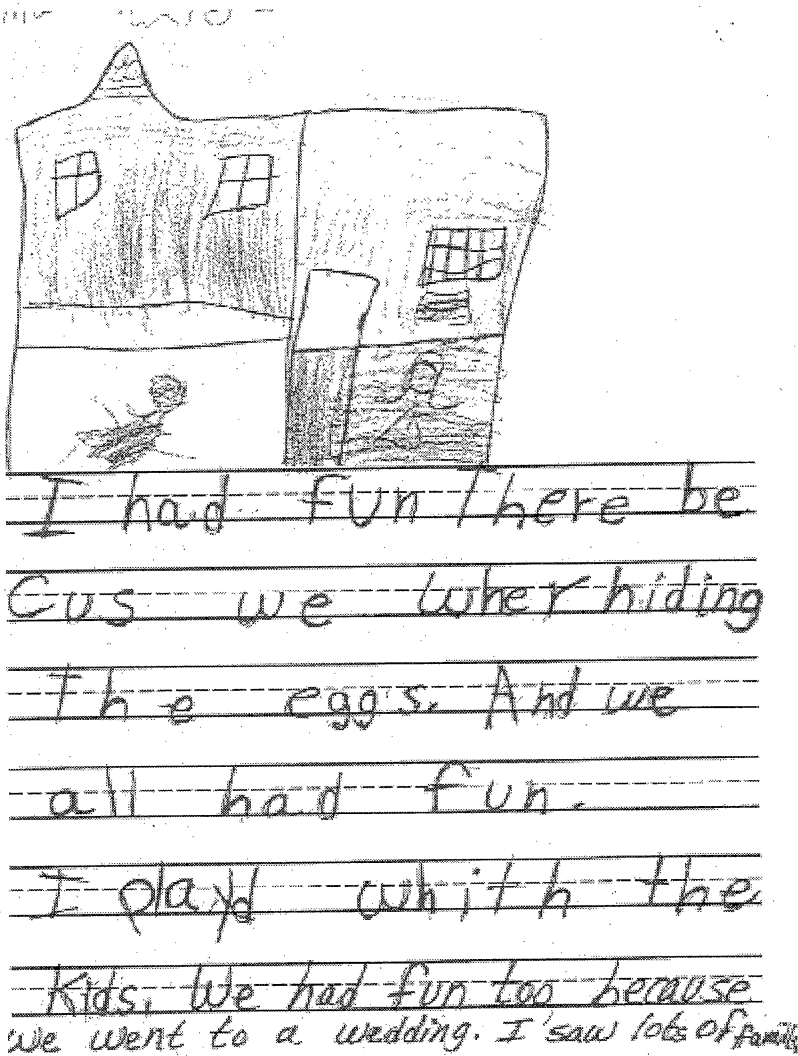 I had fun There be
Cus we wher hiding
The eggs. And we
all had fun.
I playd whith the
Kids. We had fun too because
we went to a wedding. I saw lots of family